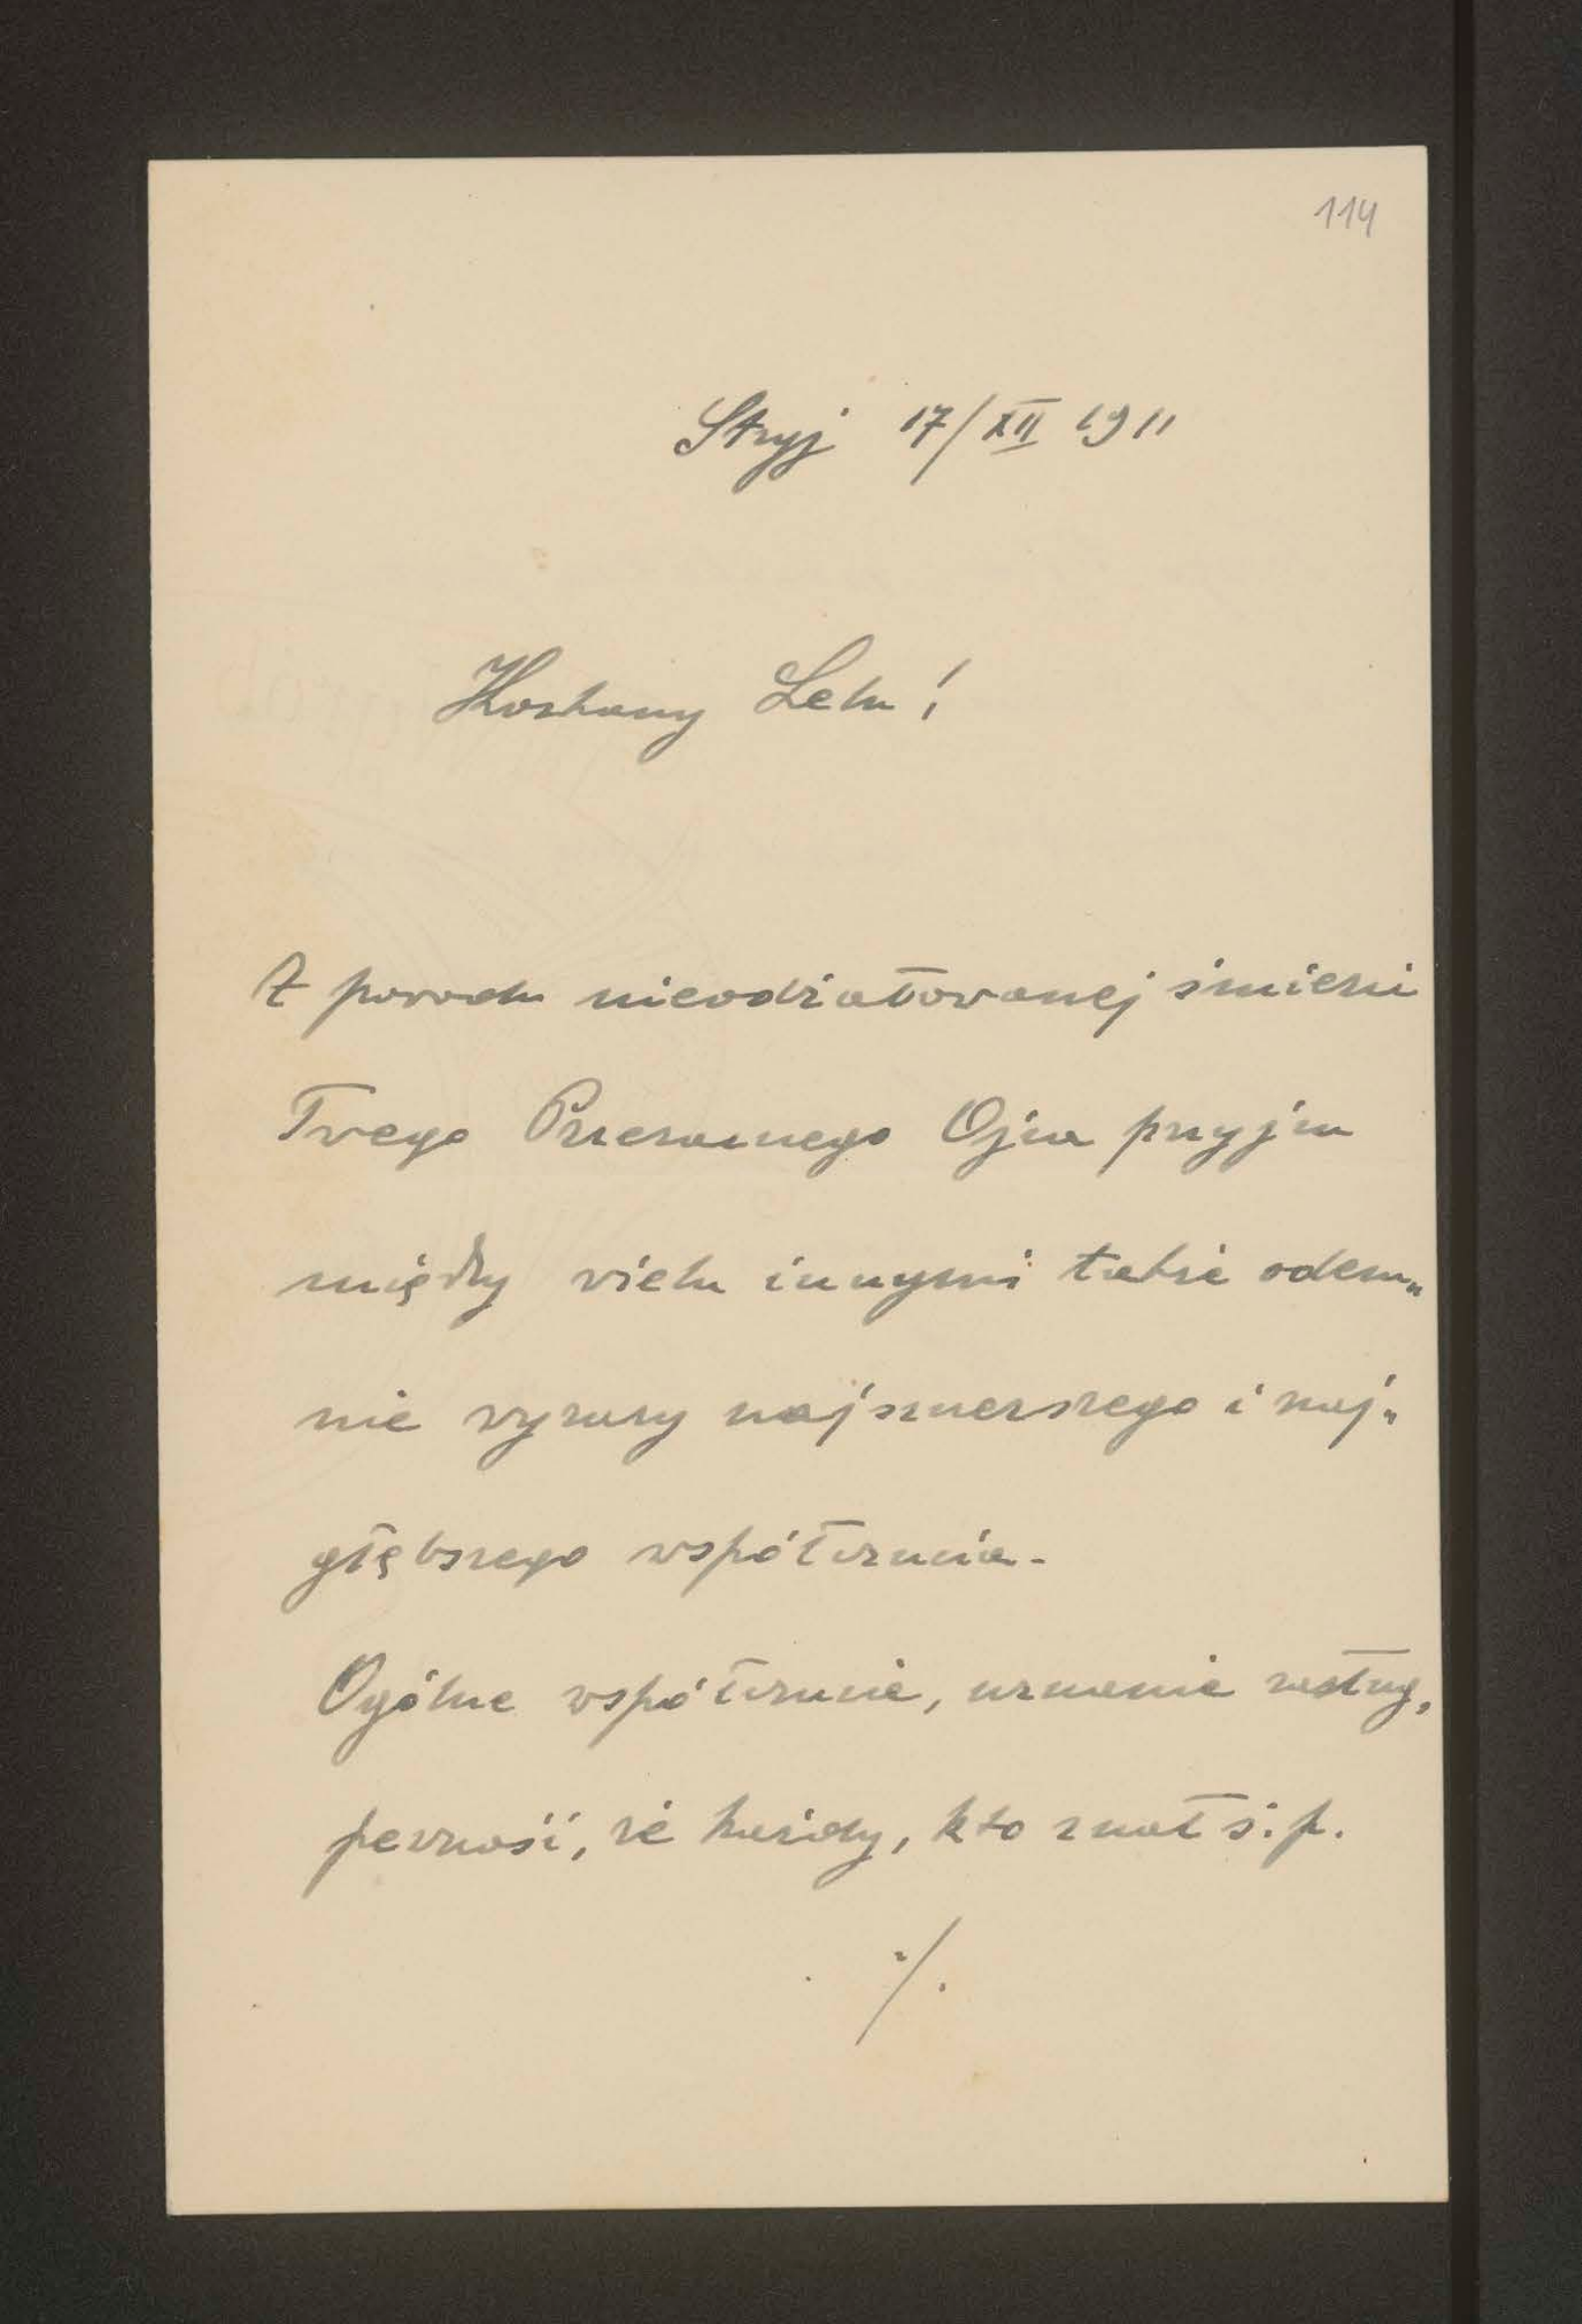 114
Stryj 17/XII 1911
Kochany Lelu!
Z powodu nieodżałowanej śmierci
Twego Przezacnego Ojca przyjm
między wielu innymi także odem„
nie wyrazy najszczerszego i naj„
głębszego współczucia.
Ogólne współczucie, uznanie zasług,
pewność, że każdy, kto znał ś.p.
./.